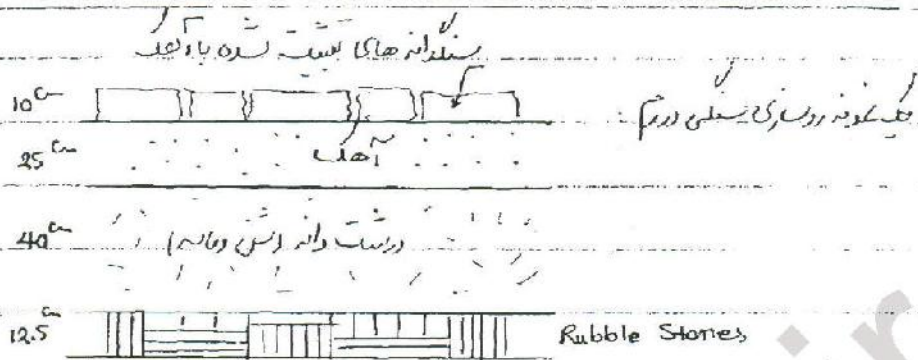 سنگدانه های تثبیت شده با آهک
10 cm
یک نمونه روسازی سنگی در رم :
25 cm
آهک
40 cm
درشت دانه (شن و ماسه)
12.5 cm
Rubble Stones